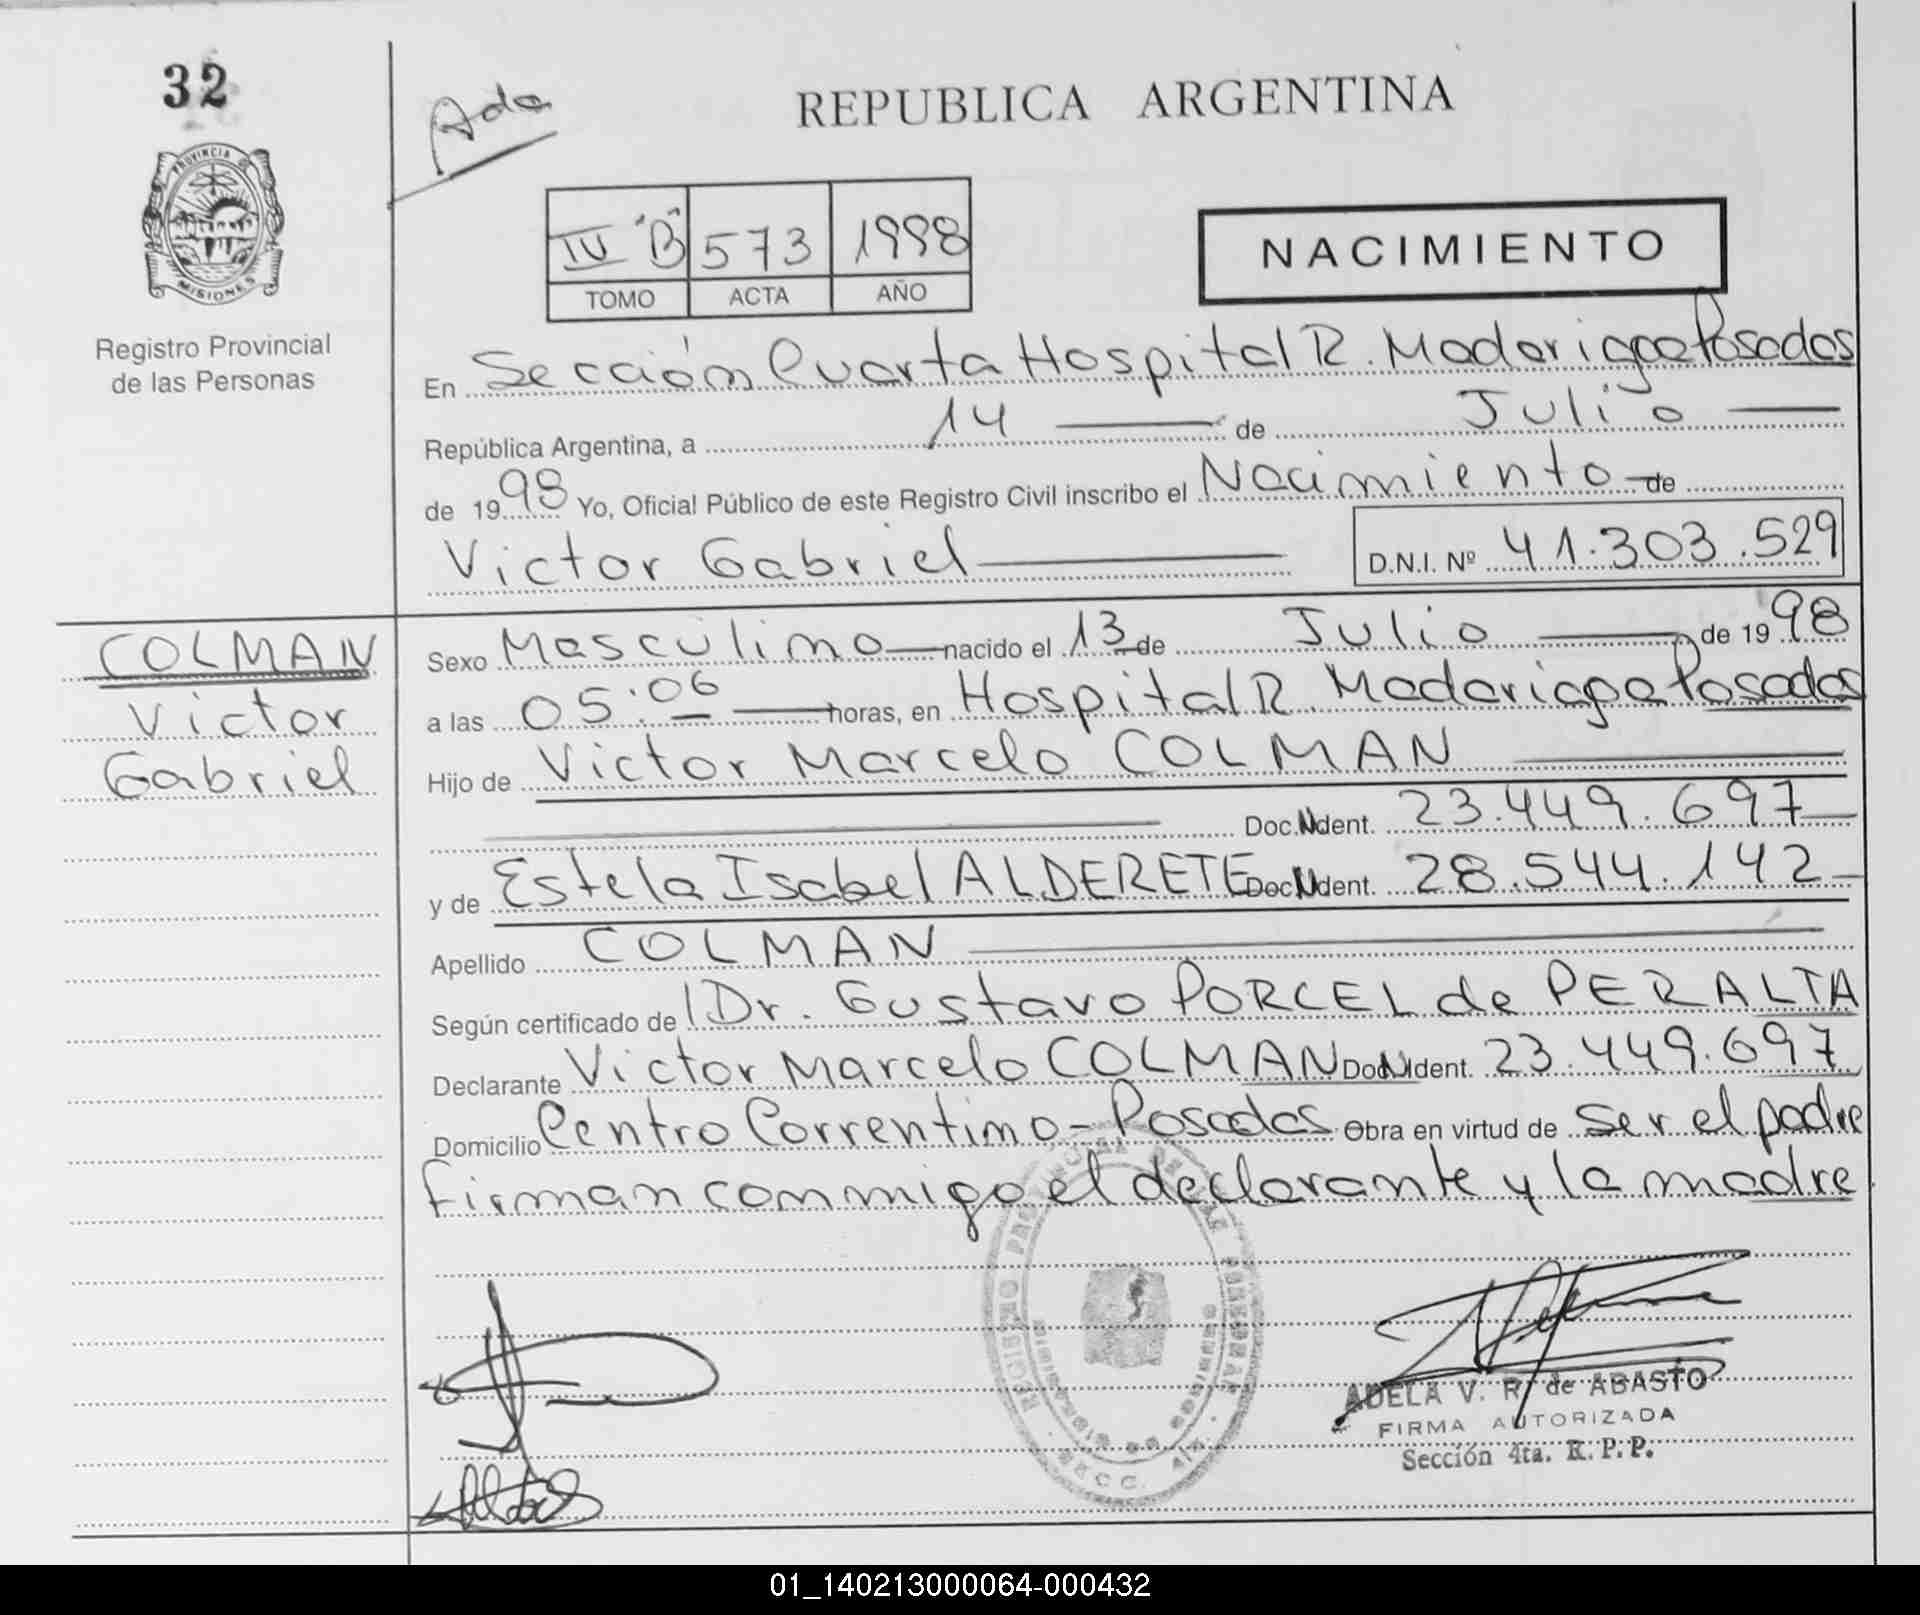 32
Ada
REPUBLICA ARGENTINA
PROVINCIA DE MISIONES
IV "B" 573 1998
TOMO ACTA AÑO
NACIMIENTO
Registro Provincial
de las Personas
En Sección Cuarta Hospital R. Madariaga Posadas
República Argentina, a 14 de Julio
de 1998 Yo, Oficial Público de este Registro Civil inscribo el Nacimiento de
Victor Gabriel D.N.I. Nº 41.303.529
COLMAN
Victor
Gabriel
Sexo Masculino nacido el 13 de Julio de 1998
a las 05:06 horas, en Hospital R. Madariaga Posadas
Hijo de Victor Marcelo COLMAN
Doc. Ident. 23.449.697
y de Estela Isabel ALDERETE Doc. Ident. 28.544.142
Apellido COLMAN
Según certificado de Dr. Gustavo PORCEL de PERALTA
Declarante Victor Marcelo COLMAN Doc. Ident. 23.449.697
Domicilio Centro Correntino - Posadas Obra en virtud de ser el padre
firman conmigo el declarante y la madre
REGISTRO PROVINCIAL DE LAS PERSONAS
SECC. 4ta.
ADELA V. R. de ABASTO
FIRMA AUTORIZADA
Sección 4ta. R.P.P.
01_140213000064-000432